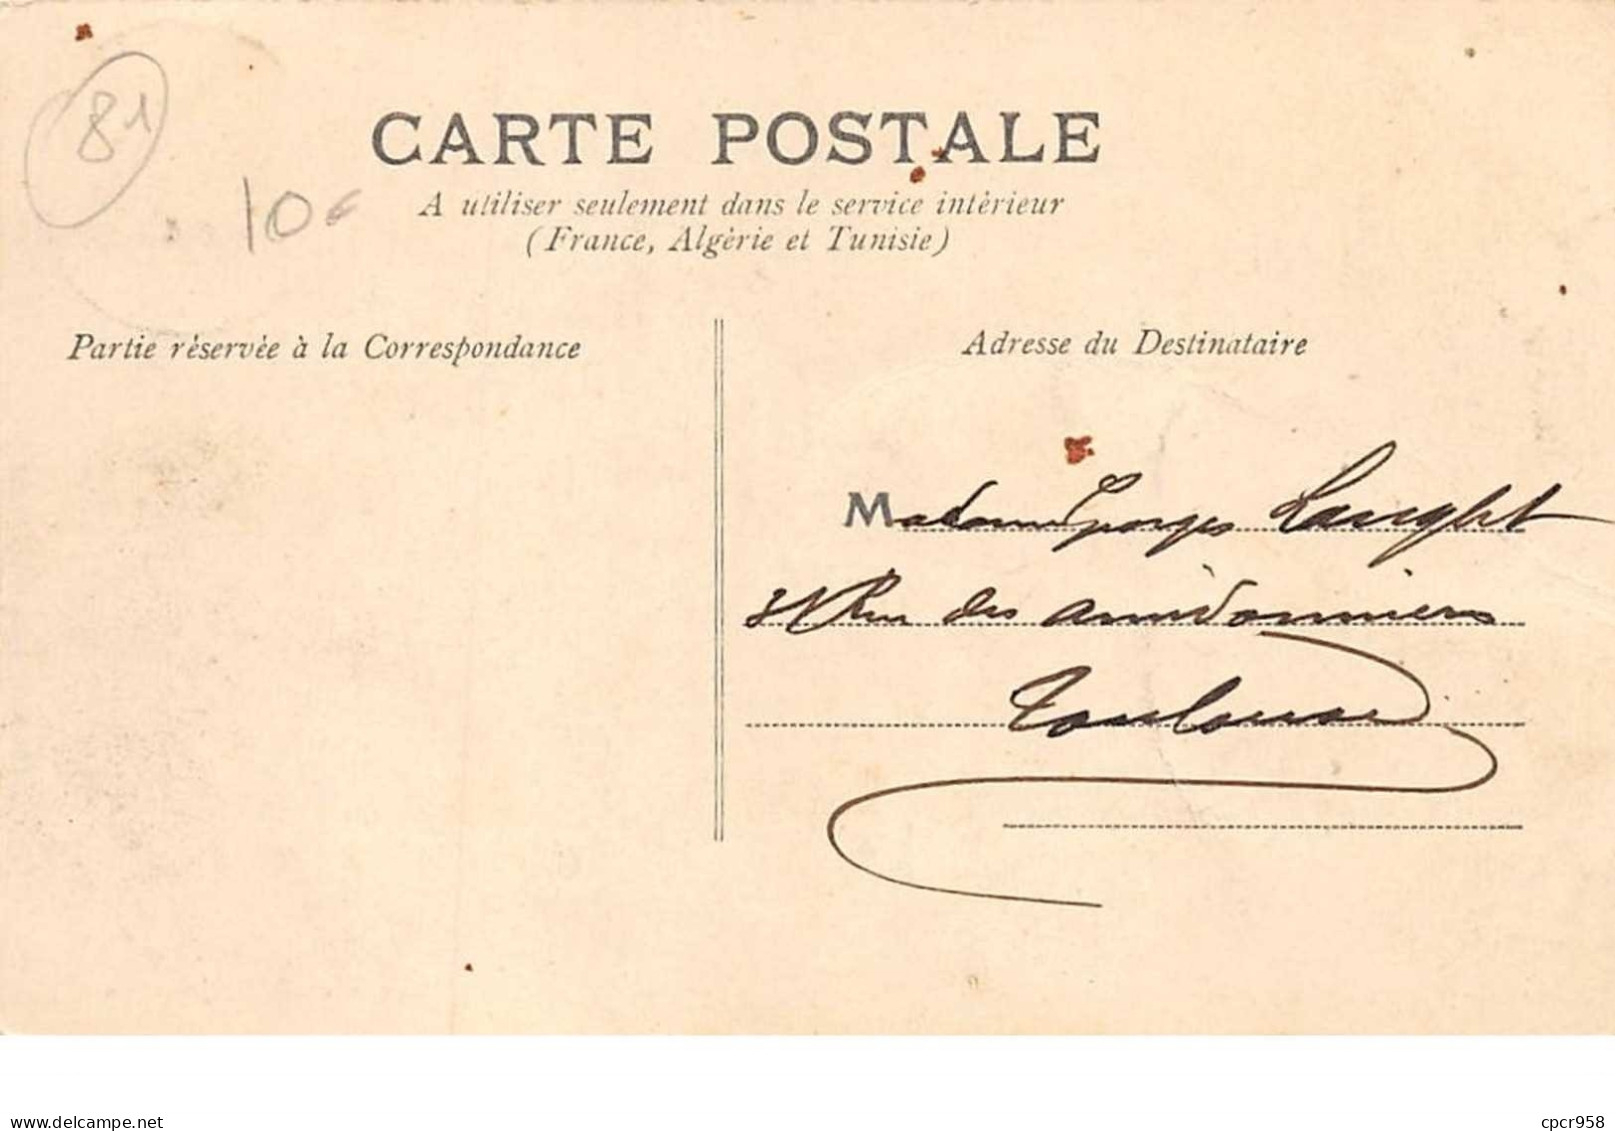 81
10€
CARTE POSTALE
A utiliser seulement dans le service intérieur
(France, Algérie et Tunisie)
Partie réservée à la Correspondance
Adresse du Destinataire
Madame Georges
Rue des amidonniers
Toulouse
www.delcampe.net
cpcr958